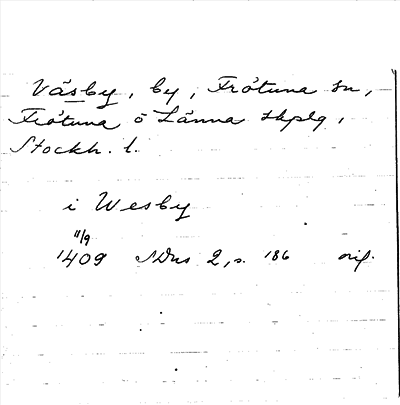 Väsby, by, Frötuna sn,
Frötuna o Länna skplg,
Stockh. l.
i Wesby
11/9
1409 SDns 2, s. 186 orig.